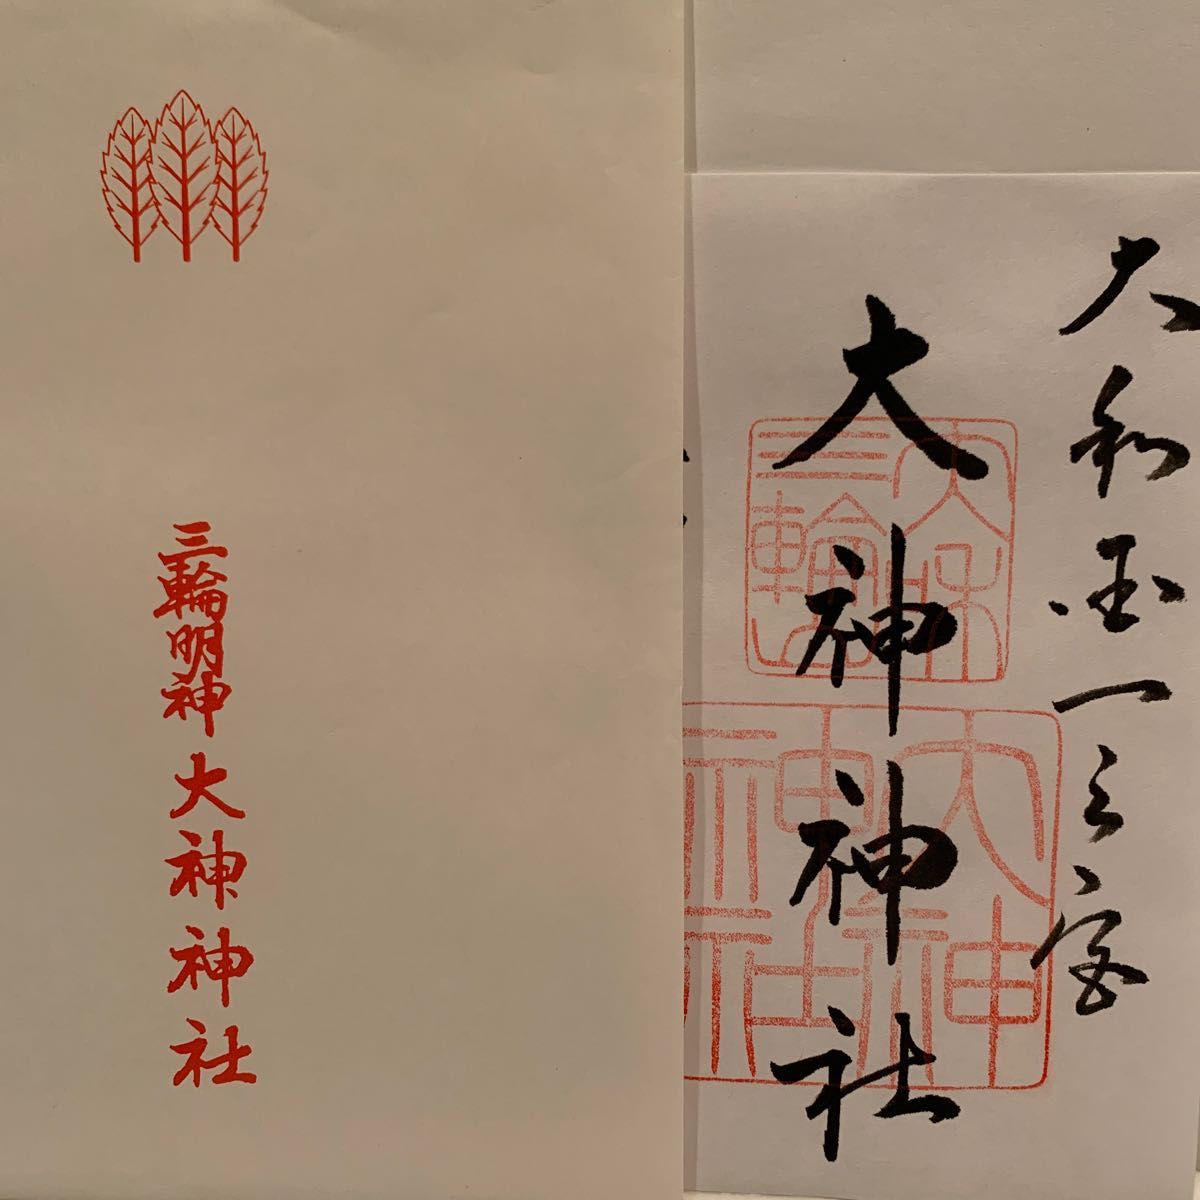 三輪明神 大神神社
大和国一之宮
大神神社
大和
三輪
大神
神社